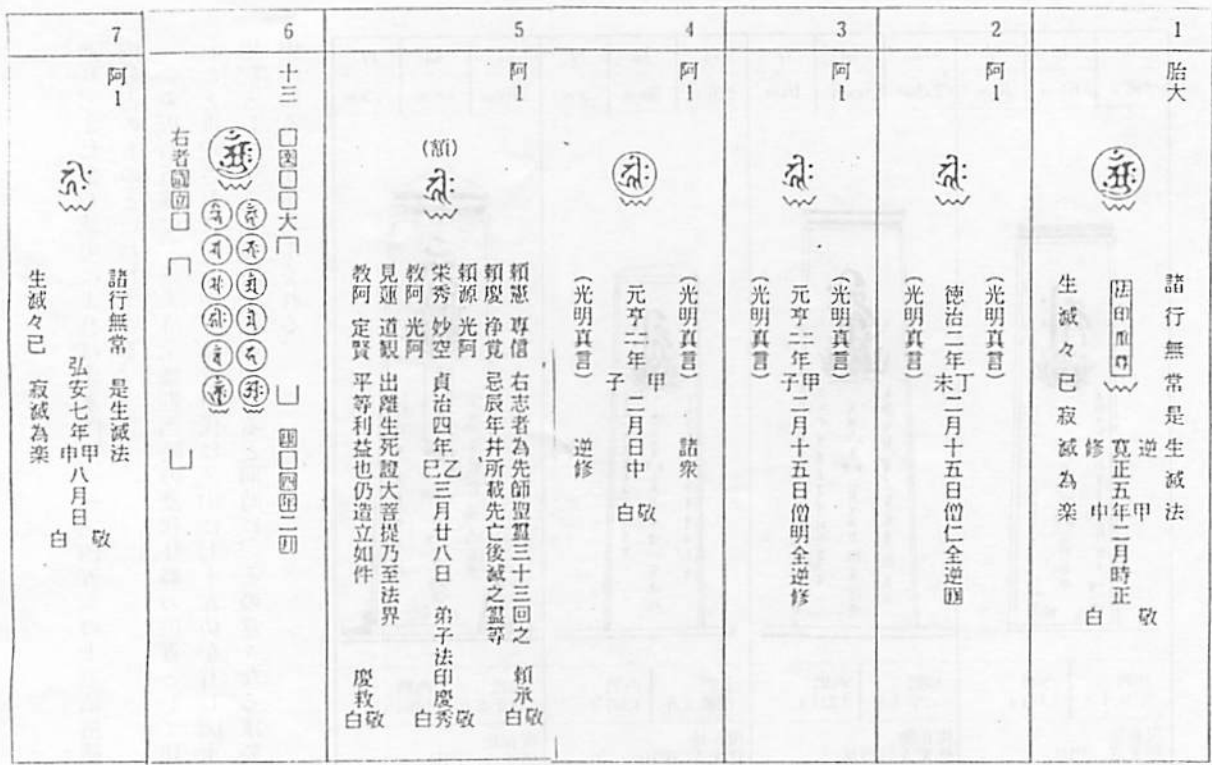 1
胎大
諸行無常是生滅法
逆修 寛正五年甲申二月時正
敬白
生滅々已寂滅為楽
2
阿1
(光明真言)
徳治二年丁未二月十五日僧仁全逆修
(光明真言)
3
阿1
(光明真言)
元亨二二年甲子二月十五日僧明全逆修
(光明真言)
4
阿1
(光明真言) 諸衆
元亨二二年甲子二月日中 敬白
(光明真言) 逆修
5
阿1
(額)
頼憲 専信 右志者為先師聖霊三十三回之 頼承敬白
頼慶 浄覚 忌辰年并所載先亡後滅之霊等
頼源 光阿
栄秀 妙空 貞治四年乙巳三月廿八日 弟子法印慶秀敬白
教阿 光阿
見蓮 道観 出離生死證大菩提乃至法界
教阿 定賢 平等利益也仍造立如件 慶救敬白
6
十三
□□□□大 □四年二月
右者□□□
7
阿1
諸行無常 是生滅法
弘安七年甲申八月日
敬白
生滅々已 寂滅為楽